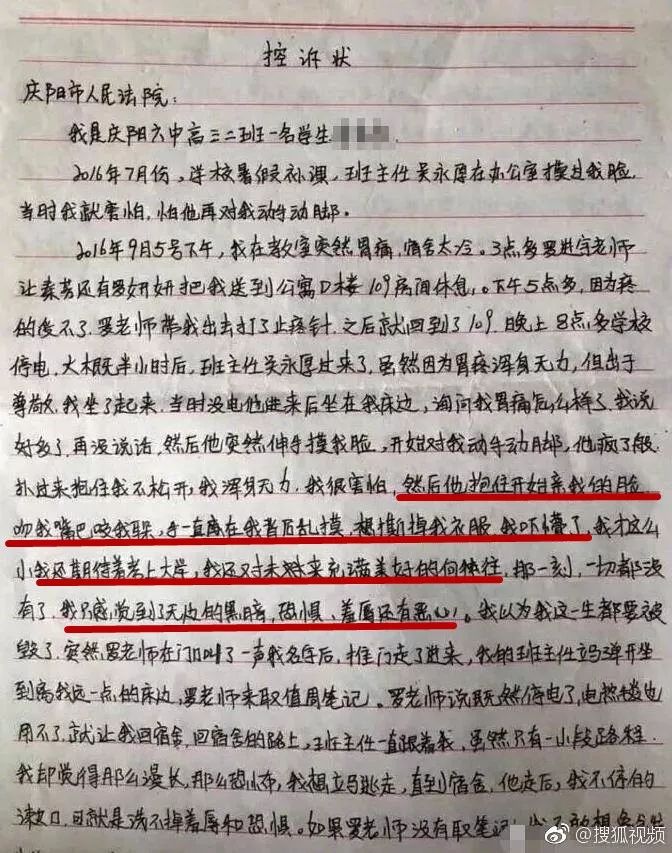 控诉状
庆阳市人民法院:
我是庆阳六中高三二班一名学生
2016年7月份,学校暑假补课,班主任吴永厚在办公室摸过我脸
当时我就害怕,怕他再对我动手动脚。
2016年9月5号下午,我在教室突然胃痛,宿舍太冷。3点多罗进宇老师
让秦芳还有罗妍妍把我送到公寓D楼109房间休息。下午5点多,因为疼
的受不了.罗老师带我出去打了止疼针.之后就回到了109.晚上8点多学校
停电.大概半小时后,班主任吴永厚过来了.虽然因为胃疼浑身无力,但出于
尊敬.我坐了起来.当时没电他进来后坐在我床边,询问我胃痛怎么样了.我说
好多了.再没说话.然后他突然伸手摸我脸,开始对我动手动脚,他疯了般
扑过来抱住我不松开,我浑身无力.我很害怕,然后他抱住开始亲我的脸
吻我嘴巴咬我耳朵,手一直在我背后乱摸,想撕掉我衣服.我吓懵了.我才这么
小我还期待着考上大学,我还对未来充满美好的向往,那一刻,一切都没
有了.我只感觉到了无边的黑暗,恐惧、羞辱还有恶心。我以为我这一生都要被
毁了.突然罗老师在门口叫了一声我名字后,推门走了进来,我的班主任立马弹开坐
到离我远一点的床边,罗老师来取值周笔记。罗老师说既然停电了,电热毯也
用不了.就让我回宿舍,回宿舍的路上,班主任一直跟着我,虽然只有一小段路程.
我却觉得那么漫长,那么恐怖,我想立马逃走,直到宿舍,他走后,我不停的
漱口,可就是洗不掉羞辱和恐惧。如果罗老师没有取笔记
@搜狐视频